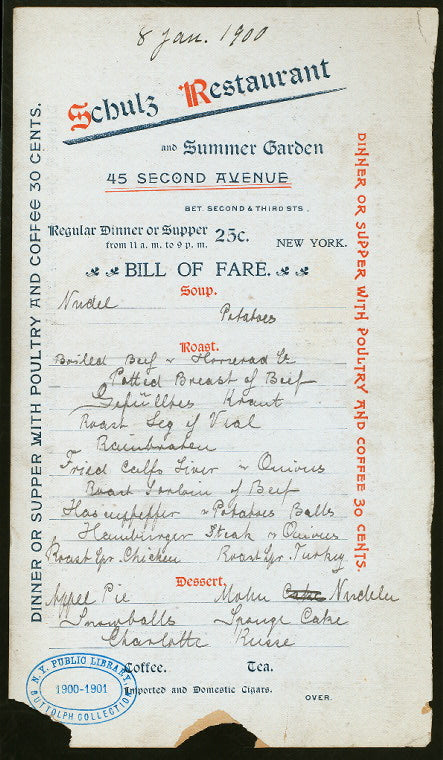 8 Jan. 1900
Schulz Restaurant
and Summer Garden
45 SECOND AVENUE
BET. SECOND & THIRD STS.
Regular Dinner or Supper 25c.
from 11 a. m. to 9 p. m.
NEW YORK.
BILL OF FARE.
Soup.
Nudel
Potatoes
Roast.
Boiled Beef
Potted Breast of Beef
Gefülltes Kraut
Roast Leg of Vial
Rambraten
Fried Calfs Liver & Onions
Roast Sorloin of Beef
Hasenpfeffer & Potatoes Balls
Hamburger Steak & Onions
Roast Spr. Chicken Roast Spr. Turkey
Dessert.
Appel Pie Mohn Cake Nudeln
Snowballs Spunge Cake
Charlotte Russe
Coffee. Tea.
Imported and Domestic Cigars.
OVER.
DINNER OR SUPPER WITH POULTRY AND COFFEE 30 CENTS.
DINNER OR SUPPER WITH POULTRY AND COFFEE 30 CENTS.
N.Y. PUBLIC LIBRARY,
1900-1901
BUTTOLPH COLLECTION